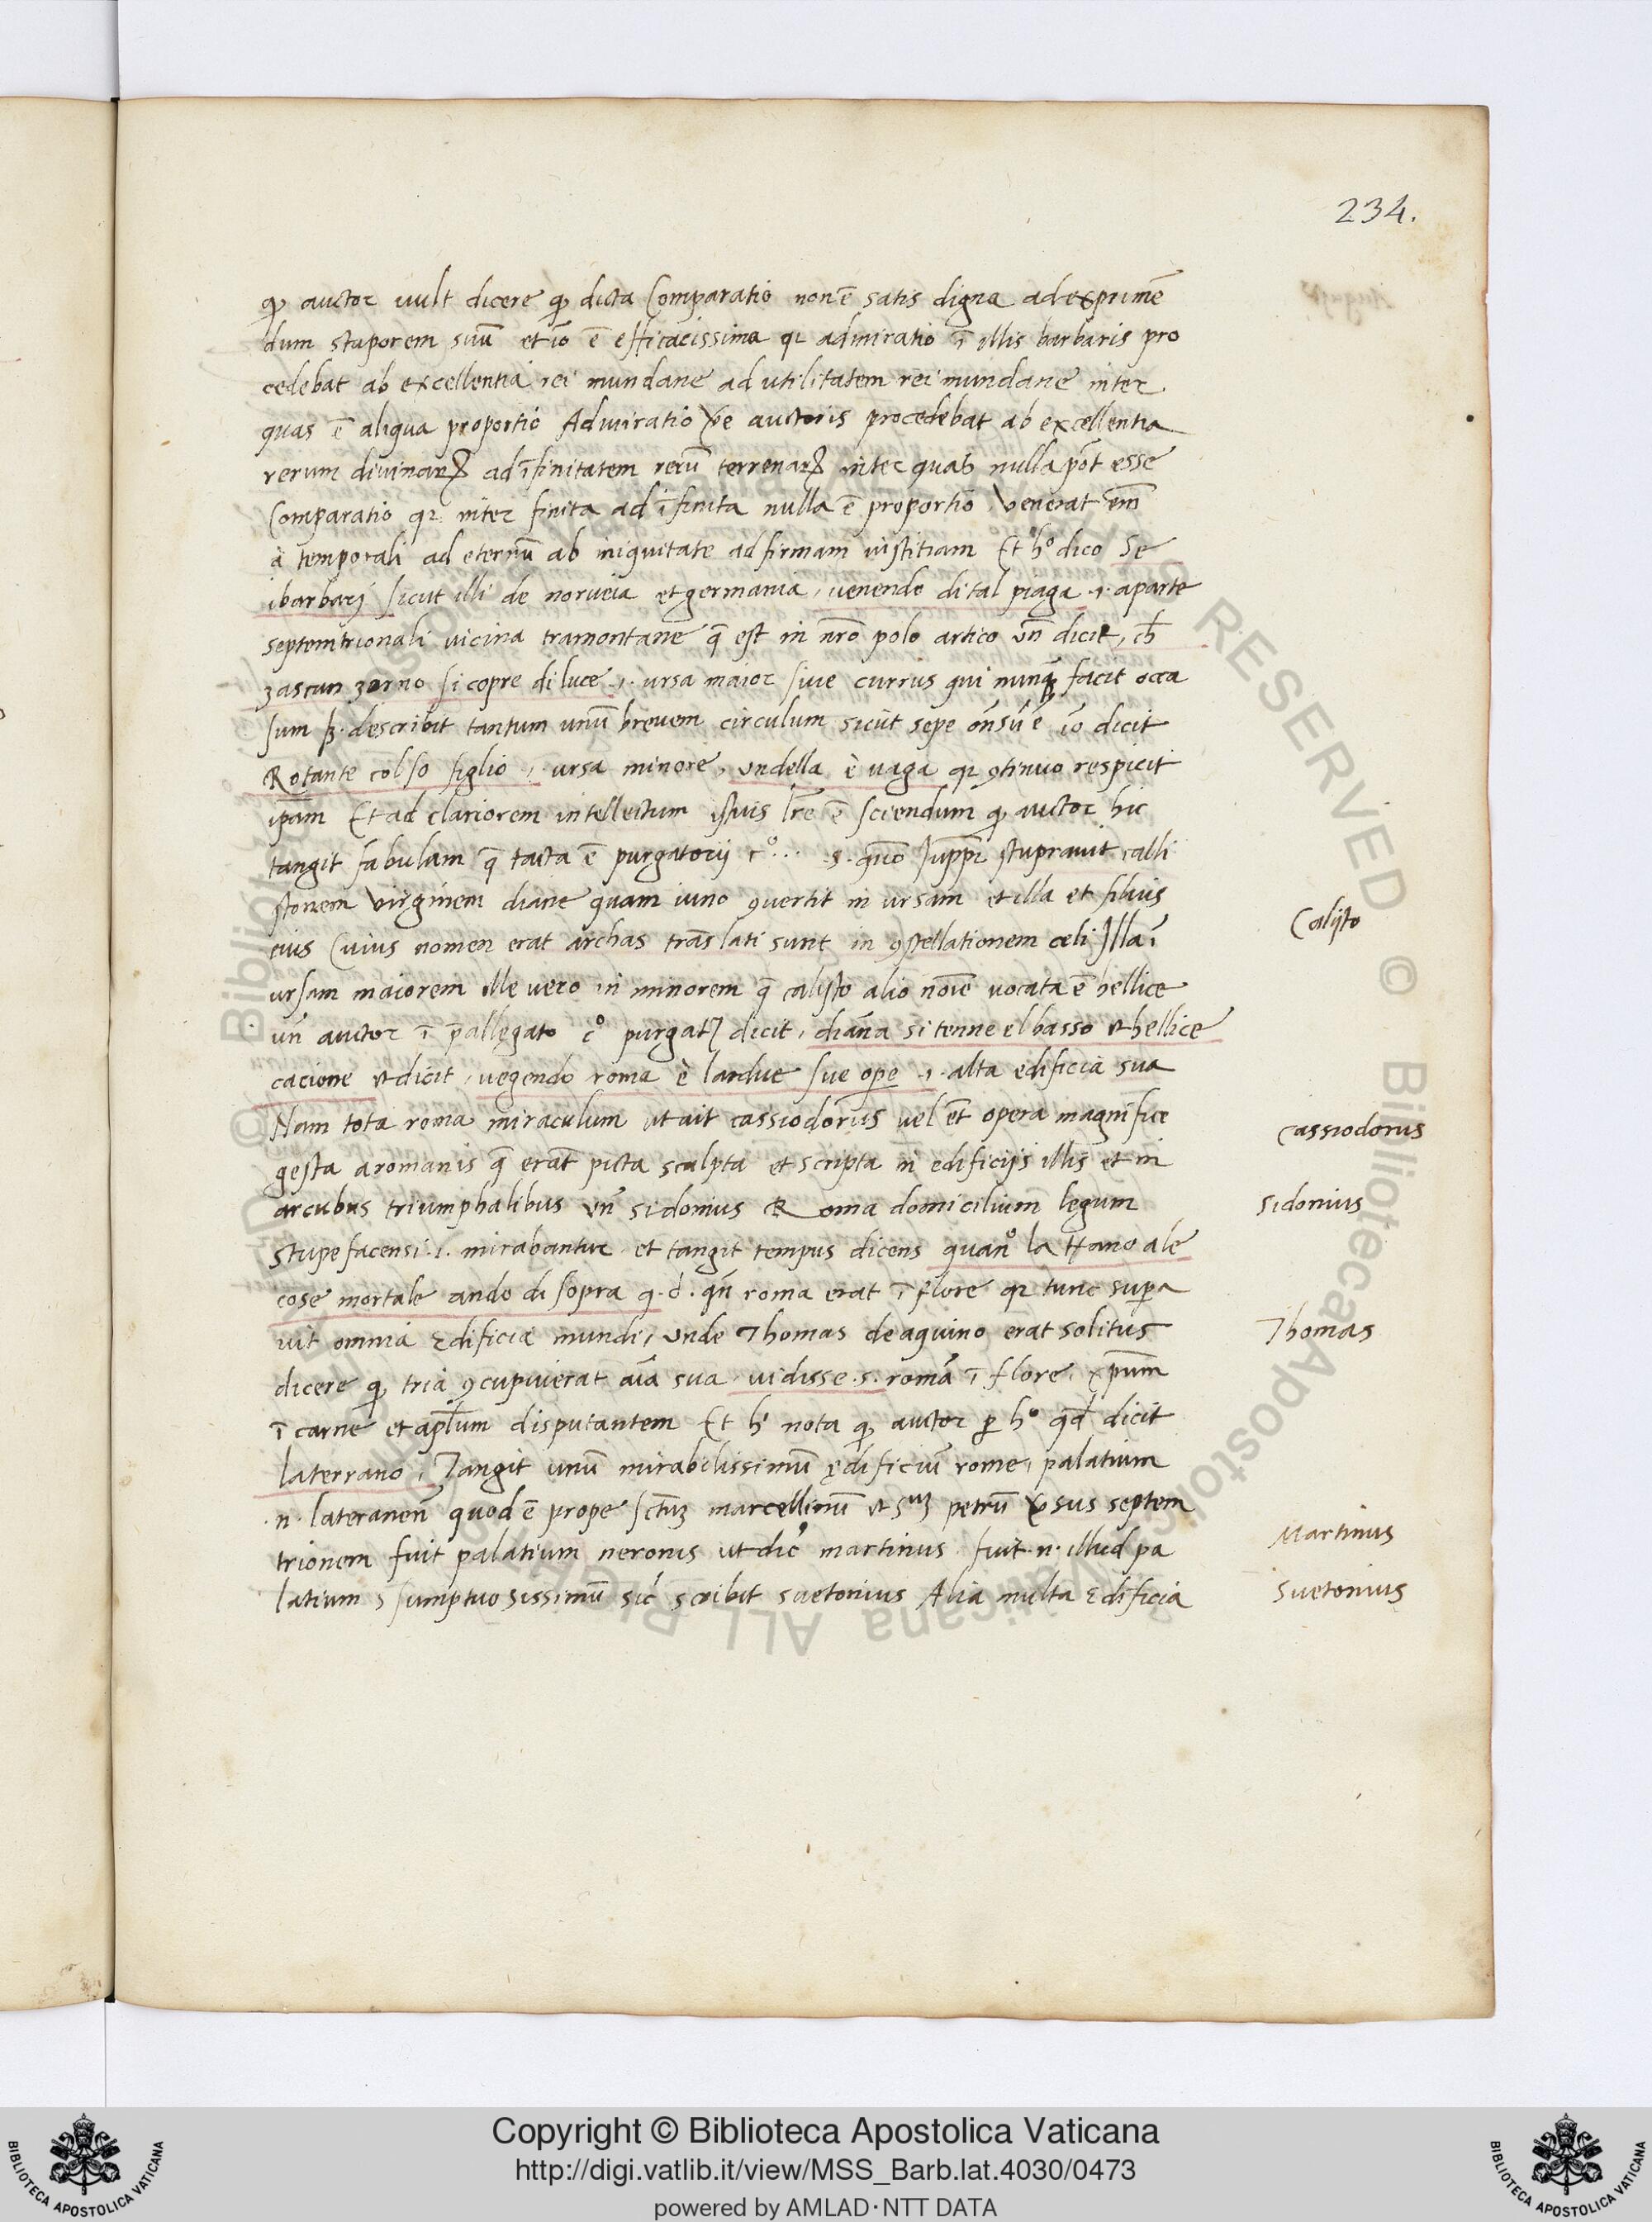 234.
ꝙ auctor uult dicere ꝙ dicta Comparatio non ē satis digna ad exprimē
dum stuporem suū et iō ē efficacissima qꝛ admiratio ī illis barbaris pro
cedebat ab excellentia rei mundane ad utilitatem rei mundane inter
quas ē aliqua proportio Admiratio ṽo auctoris procedebat ab excellentia
rerum divinaꝝ ad īfinitatem rerū terrenaꝝ inter quas nulla pōt esse
Comparatio qꝛ inter finita ad īfinita nulla ē proportio venerat em̄
à temporali ad eternū ab iniquitate ad firmam iustitiam Et hº dico Se
ibarbarj sicut illi de norueia et germania, venendo dital piaga .i. aparte
septemtrionali vicina tramontane q̄ est in nr̄o polo artico vn̄ dicit, ch̄
zascun zorno si copre di luce .i. ursa maior siue currus qui nunqꝫ facit occa
sum sꝫ describit tantum unū breuem circulum sicut sepe on̄sū ē iō dicit
Rotante col so figlio .i. ursa minore, vndella è uaga qꝛ ꝯtinuo respicit
ip̄am Et ad clariorem intellectum istius lr̄e ē sciendum ꝙ auctor hic
tangit fabulam q̄ tacta ē purgatorij cº... .s. quō Jupp̄r stuprauit calli
stonem virginem diane quam iuno ꝯuertit in ursam et illa et filius
eius Cuius nomen erat archas translati sunt in ꝯstellationem celi Illa ī
ursam maiorem ille vero in minorem q̄ calisto alio nōie vocata ē hellice
un̄ auctor ī p̄allegato cº purgat̄ dicit, diana si tenne el basso et hellice
cacione et dicit, vegendo roma è lardue sue opere .i. alta edificia sua
Nam tota roma miraculum ut ait cassiodorus vel et̄ opera magnifice
gesta a romanis q̄ erāt picta scalpta et scripta in edificijs illis et in
arcubus triumphalibus vn̄ sidonius Roma domicilium legum
stupefacensi .i. mirabantur et tangit tempus dicens quanº laterano ale
cose mortale ando di sopra q.d. qn̄ roma erat ī flore qꝛ tunc supera
uit omnia edificia mundi, unde Thomas de aquino erat solitus
dicere ꝙ tria ꝯcupiuerat aīa sua uidisse .s. romā ī flore, xp̄um
ī carne et ap̄lum disputantem Et hʳ nota ꝙ auctor ꝑ hº qd̄ dicit
laterrano, Tangit unū mirabilissimū ędificiū rome, palatium
.n. lateranen̄ quod ē prope sctūꝫ marcellinū et sūꝫ petrū ṽsus septem
trionem fuit palatium neronis ut dic̄ martinus fuit .n. illud pa
latium sumptuosissimū sic̄ scribit suetonius Alia multa edificia
Calisto
Cassiodorus
Sidonius
Thomas
Martinus
Suetonius
Copyright © Biblioteca Apostolica Vaticana
http://digi.vatlib.it/view/MSS_Barb.lat.4030/0473
powered by AMLAD·NTT DATA